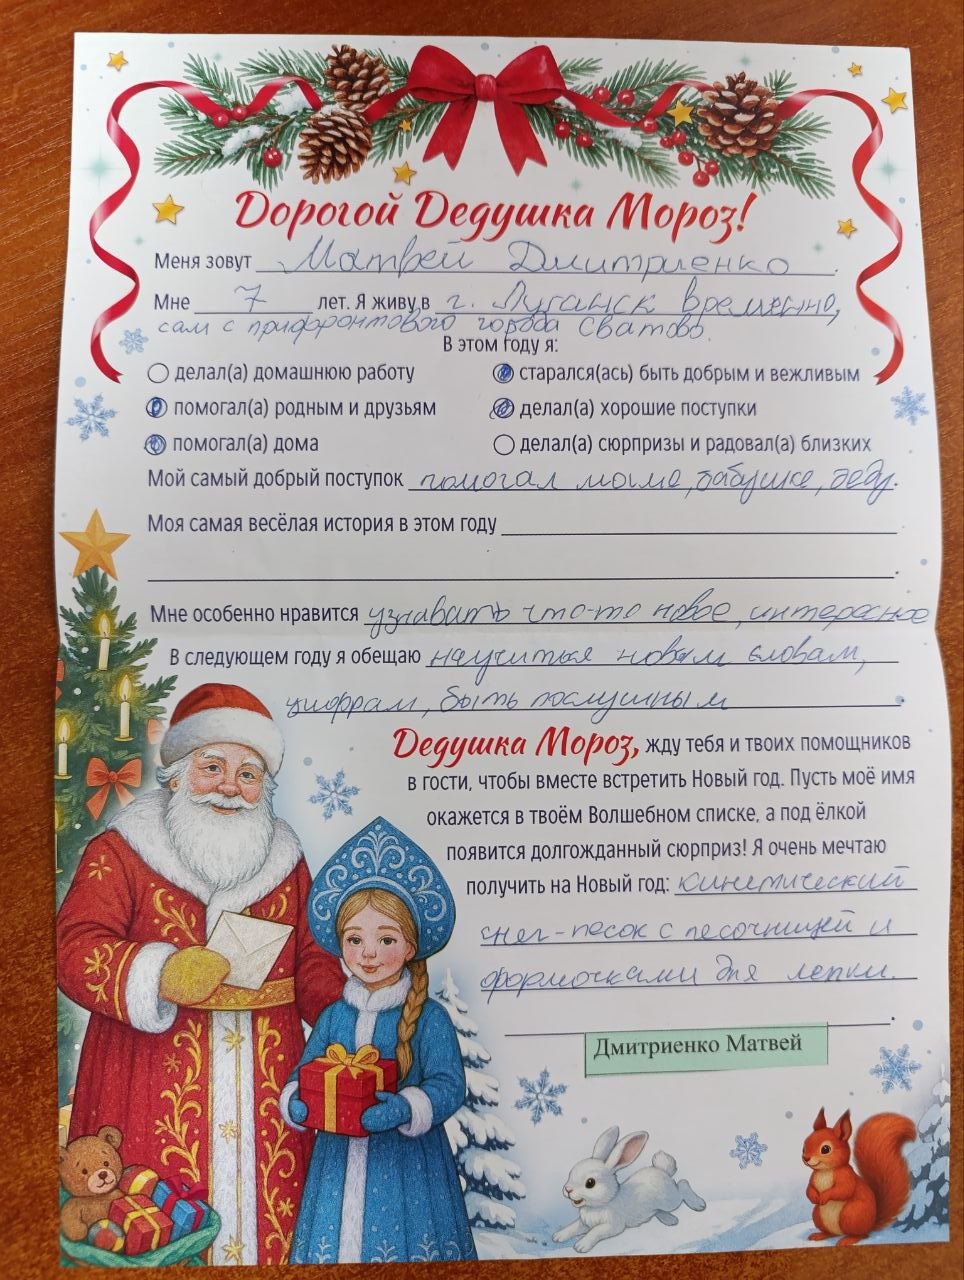 Дорогой Дедушка Мороз!
Меня зовут Матвей Дмитриенко.
Мне 7 лет. Я живу в г. Луганск временно,
сам с прифронтового города Сватово.
В этом году я:
делал(а) домашнюю работу старался(ась) быть добрым и вежливым
помогал(а) родным и друзьям делал(а) хорошие поступки
помогал(а) дома делал(а) сюрпризы и радовал(а) близких
Мой самый добрый поступок помогал маме, бабушке, деду.
Моя самая весёлая история в этом году
.
Мне особенно нравится узнавать что-то новое, интересное
В следующем году я обещаю научиться новым словам,
цифрам, быть послушным.
Дедушка Мороз, жду тебя и твоих помощников
в гости, чтобы вместе встретить Новый год. Пусть моё имя
окажется в твоём Волшебном списке, а под ёлкой
появится долгожданный сюрприз! Я очень мечтаю
получить на Новый год: кинетический
снег-песок с песочницей и
формочками для лепки.
.
Дмитриенко Матвей